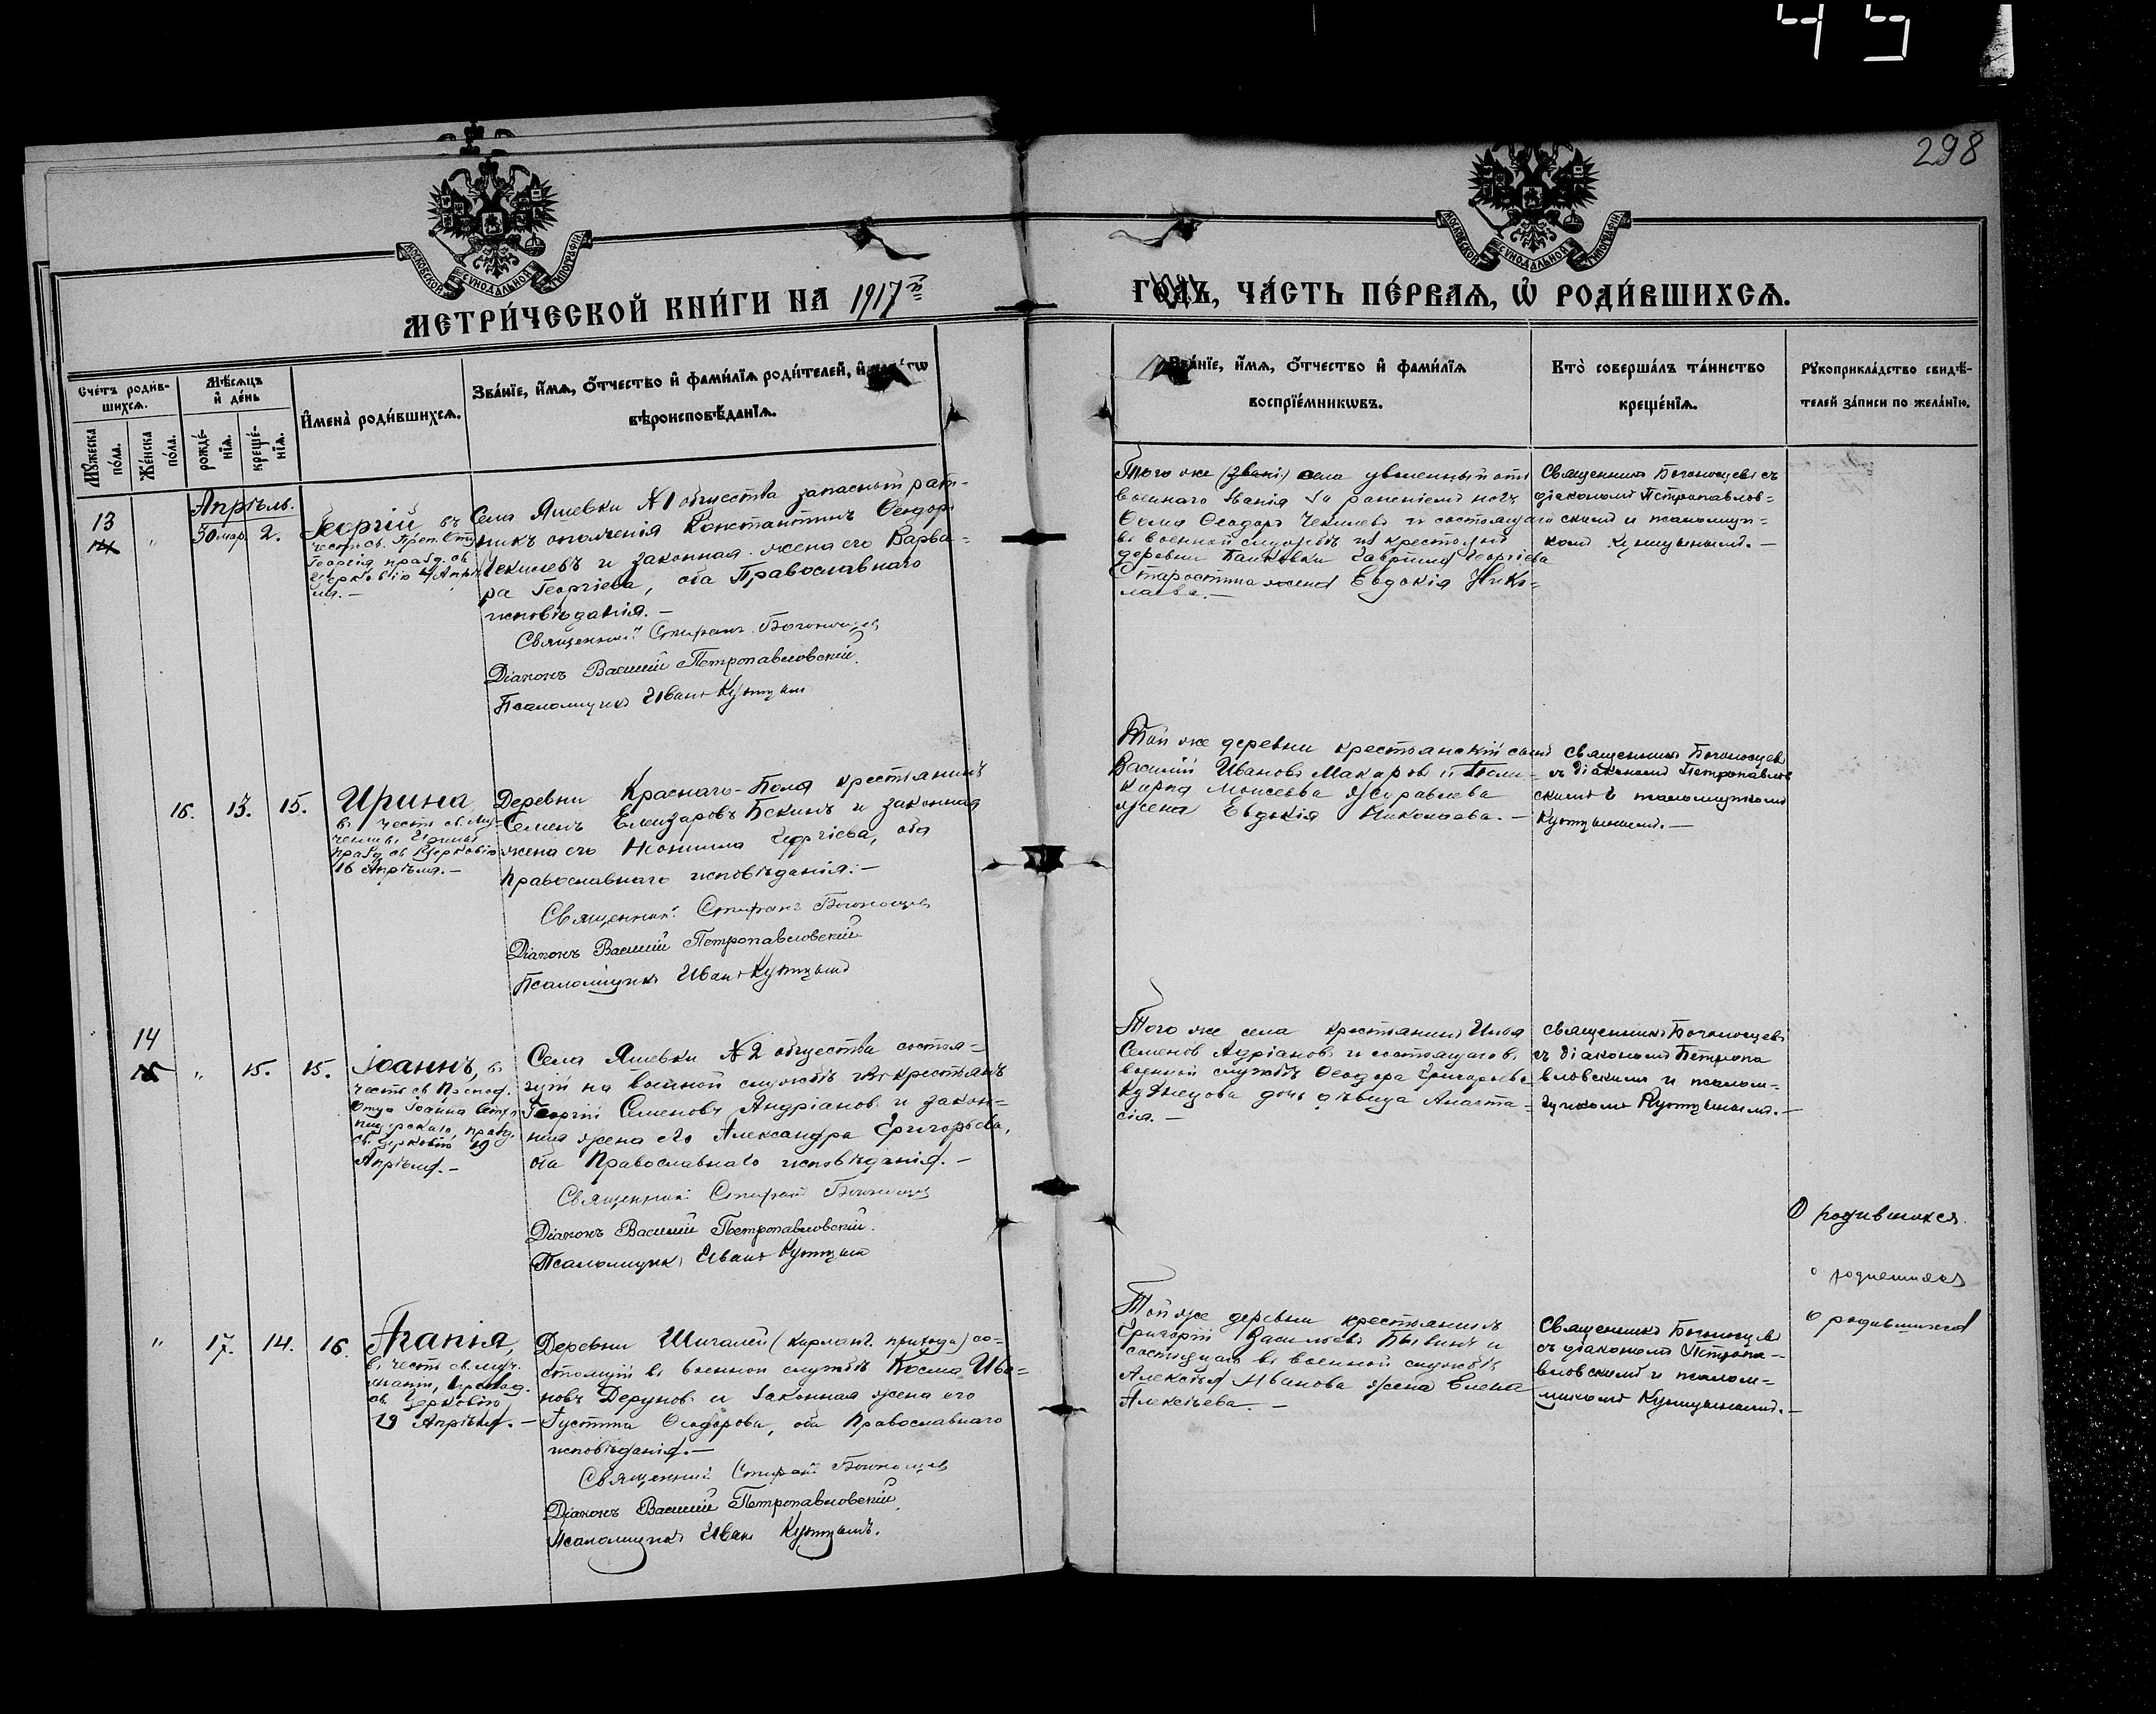 45
298
МОСКОВСКОЙ СѴНОДАЛЬНОЙ ТИПОГРАФІИ.
МОСКОВСКОЙ СѴНОДАЛЬНОЙ ТИПОГРАФІИ.
МЕТРИ́ЧЕСКОЙ КНИ́ГИ НА 1917й
ГОДЪ, ЧА́СТЬ ПЕ́РВАѦ, Ѡ҆ РОДИ́ВШИХСѦ.
Сче́тъ роди́в-
шихсѧ.
Мꙋ́жеска по́ла.
Же́нска по́ла.
Мѣ́сѧцъ и҆ де́нь
рожде́-нїѧ.
креще́-нїѧ.
И҆мена̀ роди́вшихсѧ.
Зва́нїе, и҆́мѧ, о҆́тчество и҆ фами́лїѧ роди́телей, и҆
вѣроисповѣ́данїѧ.
Зва́нїе, и҆́мѧ, о҆́тчество и҆ фами́лїѧ
воспрїе́мникѡвъ.
Кто̀ соверша́лъ та́инство
креще́нїѧ.
Рꙋкоприкла́дство свидѣ́-
телей за́писи по жела́нїю.
Апрѣль.
13
"
30 мар.
2.
Георгій въ
честь св. Преп. Отц
Георгія празд. св.
Церковію 4 Апрѣ
ля.—
Села Яшевки №1 общества запасный рат-
никъ ополченія Константинъ Ѳеодоръ
Чекилевъ и законная жена его Варва-
ра Георгіева, оба Православнаго
исповѣданія.—
Священникъ Стефанъ Богоносцевъ
Діаконъ Василій Петропавловскій.
Псаломщикъ Иванъ Купцынъ
Того же села уволенный отъ
военнаго званія за раненіемъ ноги
Ѳома Ѳеодоръ Чекилевъ и состоящаго
въ военной службѣ изъ крестьянъ
деревни Гавріила Георгіева
Старостина жена Евдокія Нико-
лаева.—
Священникъ Богоносцевъ съ
діакономъ Петропавлов-
скимъ и псаломщи-
комъ Купцынымъ.—
16.
13.
15.
Ирина
въ честь св. Му-
ченицы Ирины
празд. св. Церковію
16 Апрѣля.—
Деревни Краснаго-Поля крестьянинъ
Семенъ Елеазаровъ Бекинъ и законная
жена его Неонилла Георгіева, оба
Православнаго исповѣданія.—
Священникъ Стефанъ Богоносцевъ
Діаконъ Василій Петропавловскій
Псаломщикъ Иванъ Купцынъ
Той же деревни крестьянскій сынъ
Василій Ивановъ Макаровъ и Поли-
карпа Моисеева Журавлева
жена Евдокія Николаева.—
Священникъ Богоносцевъ
съ діакономъ Петропавлов
скимъ и псаломщикомъ
Купцынымъ.—
14
"
15.
15.
Іоаннъ, въ
честь св. Препод.
Отца Іоанна
празд.
св. Церковію 19
Апрѣля.—
Села Яшевки №2 общества состоя-
щій на военной службѣ изъ крестьянъ
Георгій Семеновъ Андріановъ и закон-
ная жена его Александра Григорьева,
оба Православнаго исповѣданія.—
Священникъ Стефанъ Богоносцевъ
Діаконъ Василій Петропавловскій.
Псаломщикъ Иванъ Купцынъ
Того же села крестьянинъ Илья
Семеновъ Адріановъ и состоящаго въ
военной службѣ Ѳеодора Григорьева
Кузнецова дочь дѣвица Анаста-
сія.—
Священникъ Богоносцевъ
съ діакономъ Петропа
вловскимъ и псалом-
щикомъ Купцынымъ.—
"
17.
14.
16.
Агапія,
въ честь св. муч.
Агапіи, празд.
св. Церковію
19 Апрѣля.—
Деревни Шигалей (Кирланг. прихода) со-
стоящій въ военной службѣ Косма Ива-
новъ Деруновъ и законная жена его
Іустина Ѳеодорова, оба Православнаго
исповѣданія.—
Священникъ Стефанъ Богоносцевъ
Діаконъ Василій Петропавловскій
Псаломщикъ Иванъ Купцынъ.
Той же деревни крестьянинъ
Григорій Васильевъ Бывинъ и
состоящаго въ военной службѣ
Алексѣя Иванова жена Елена
Алексѣева.—
Священникъ Богоносцевъ
съ діакономъ Петропа-
вловскимъ и псалом-
щикомъ Купцынымъ.—
О родившихся.
о родившихся
о родившихся